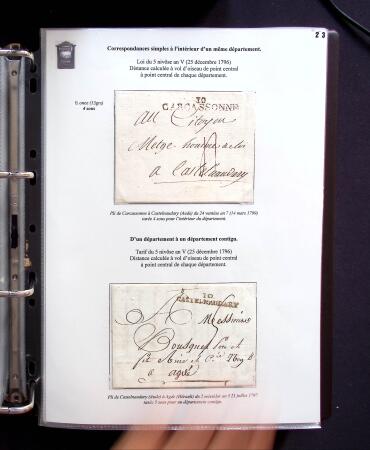 23
Correspondances simples à l'intérieur d'un même département.
Loi du 5 nivôse an V (25 décembre 1796)
Distance calculée à vol d'oiseau de point central
à point central de chaque département.
½ once (15grs)
4 sous
10
CARCASSONNE
Au Citoyen
Melge homme de loi
a Castelnaudary
Pli de Carcassonne à Castelnaudary (Aude) du 24 ventôse an 7 (14 mars 1796)
taxée 4 sous pour l'intérieur du département.
D'un département à un département contigu.
Tarif du 5 nivôse an V (25 décembre 1796)
Distance calculée à vol d'oiseau de point central
à point central de chaque département.
10
CASTELNAUDARY
A Messieurs
Bousquet
à agde
Pli de Castelnaudary (Aude) à Agde (Hérault) du 21 juillet 1797
taxée 5 sous pour un département contigu.